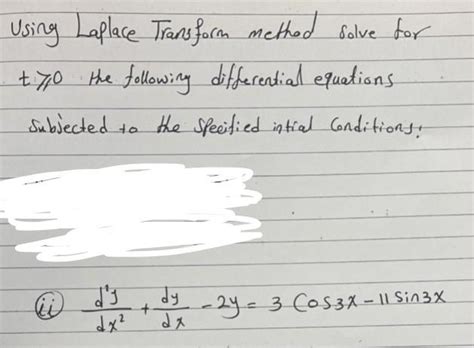 Using Laplace Transform method solve for
t ⩾ 0 the following differential equations
Subjected to the Specified intial Conditions:
(ii) d²y/dx² + dy/dx - 2y = 3 Cos3x - 11 Sin3x